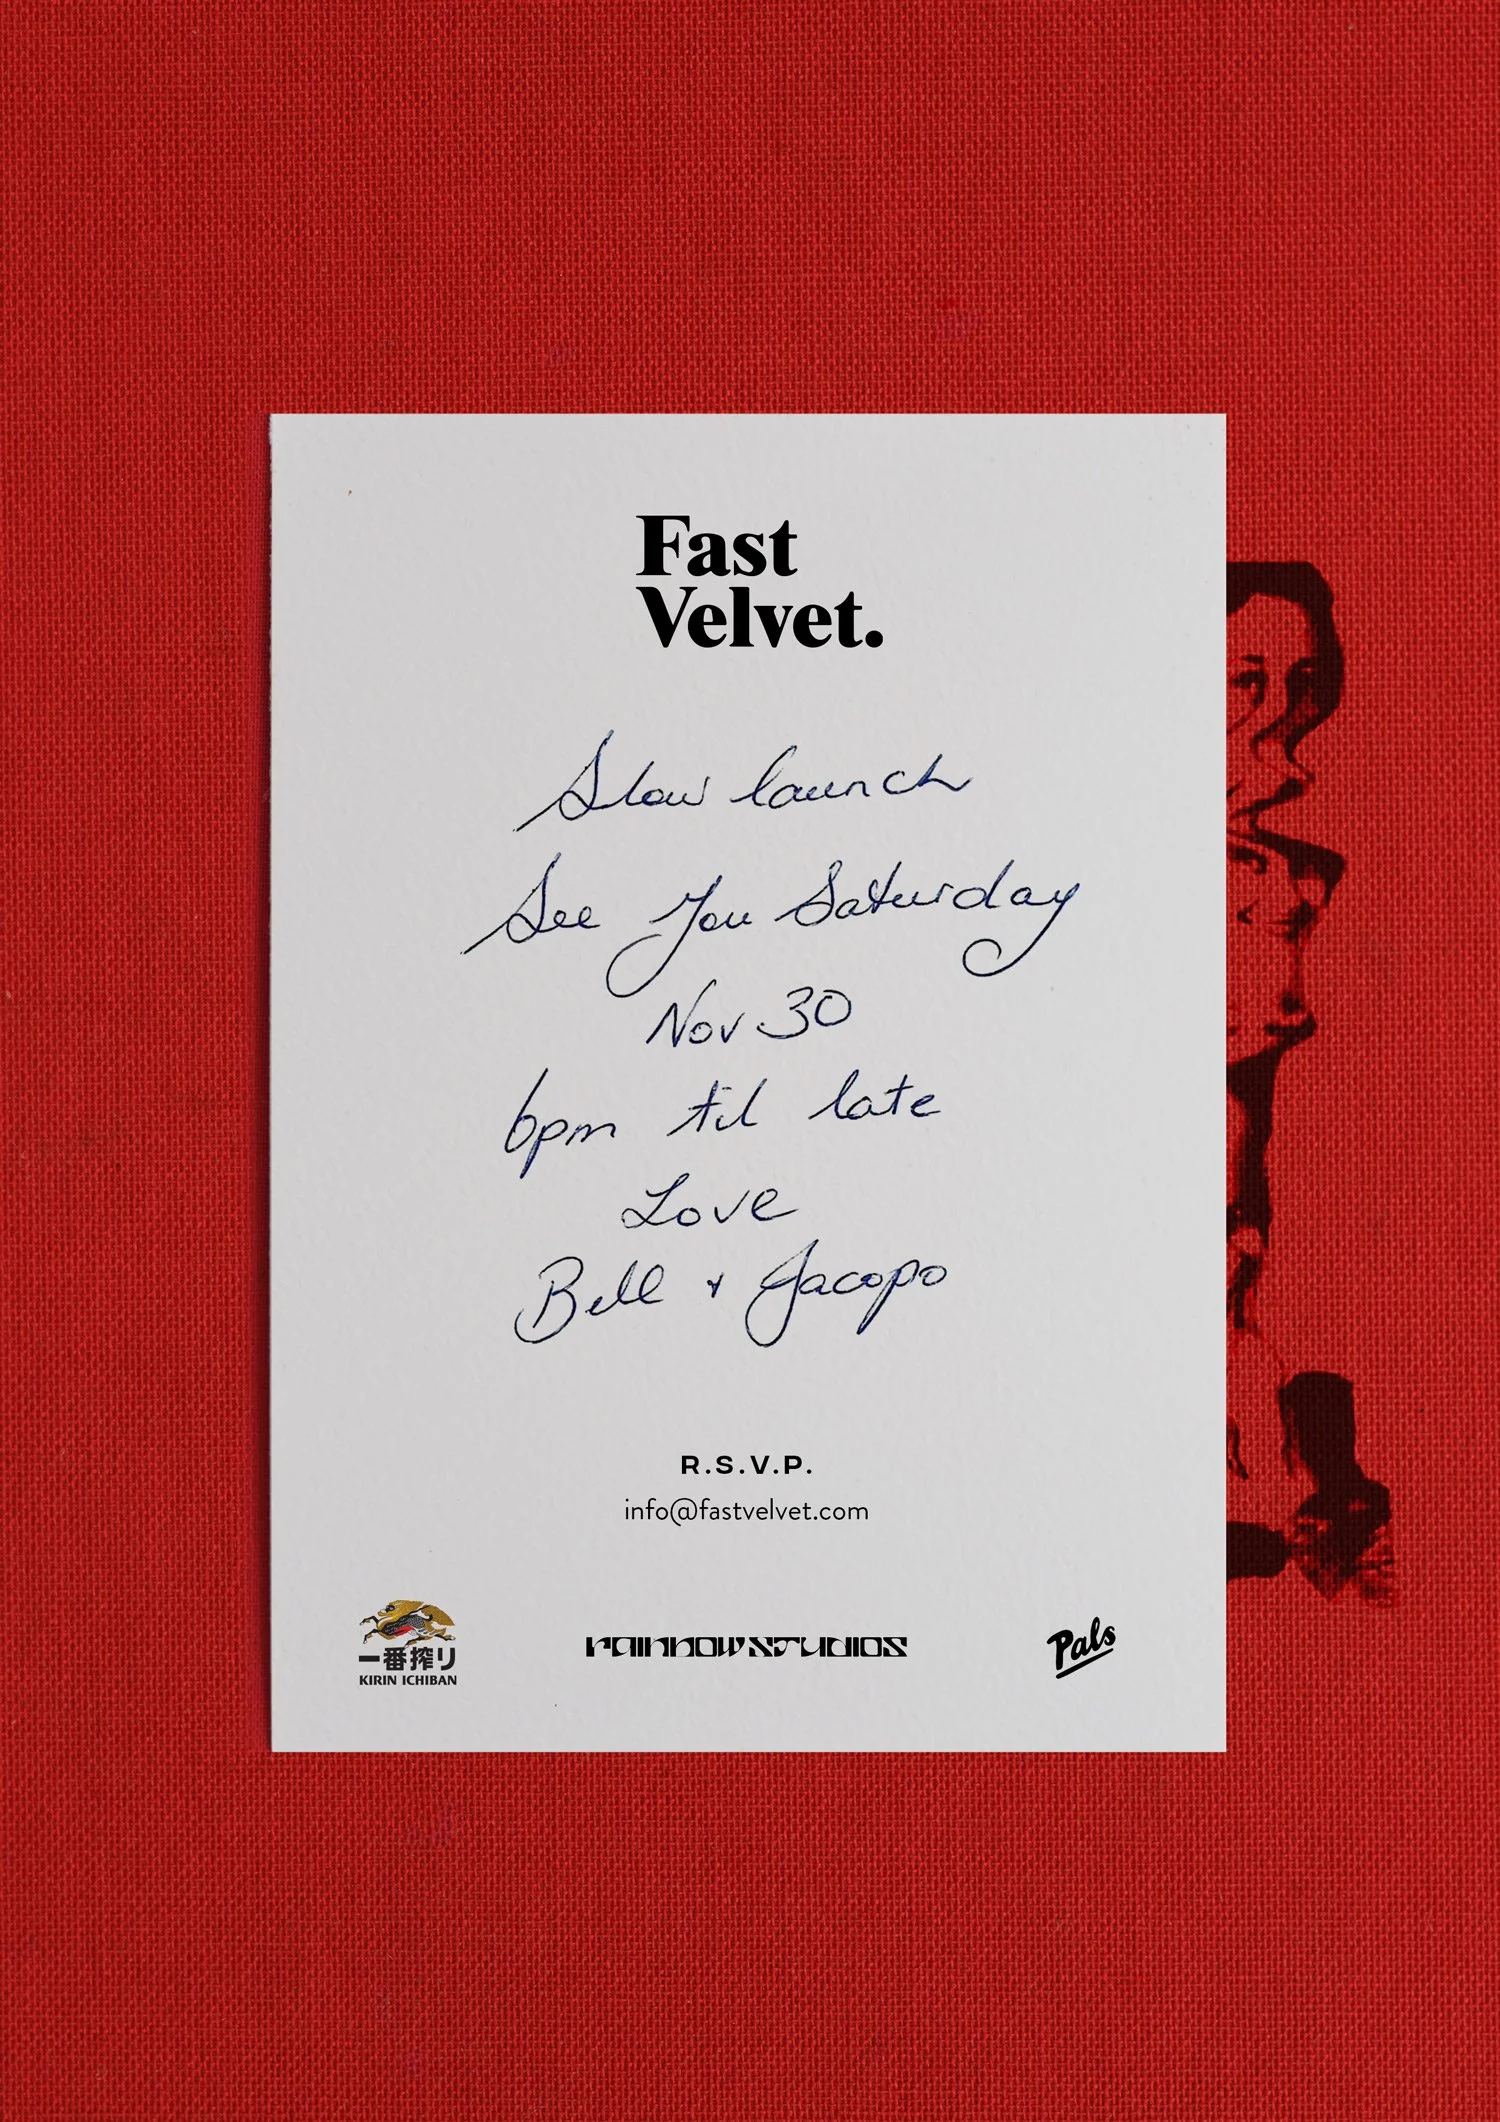 Fast
Velvet.
Slow launch
See You Saturday
Nov 30
6pm til late
Love
Bell + Jacopo
R.S.V.P.
info@fastvelvet.com
一番搾り
KIRIN ICHIBAN
rainbowstudios
Pals